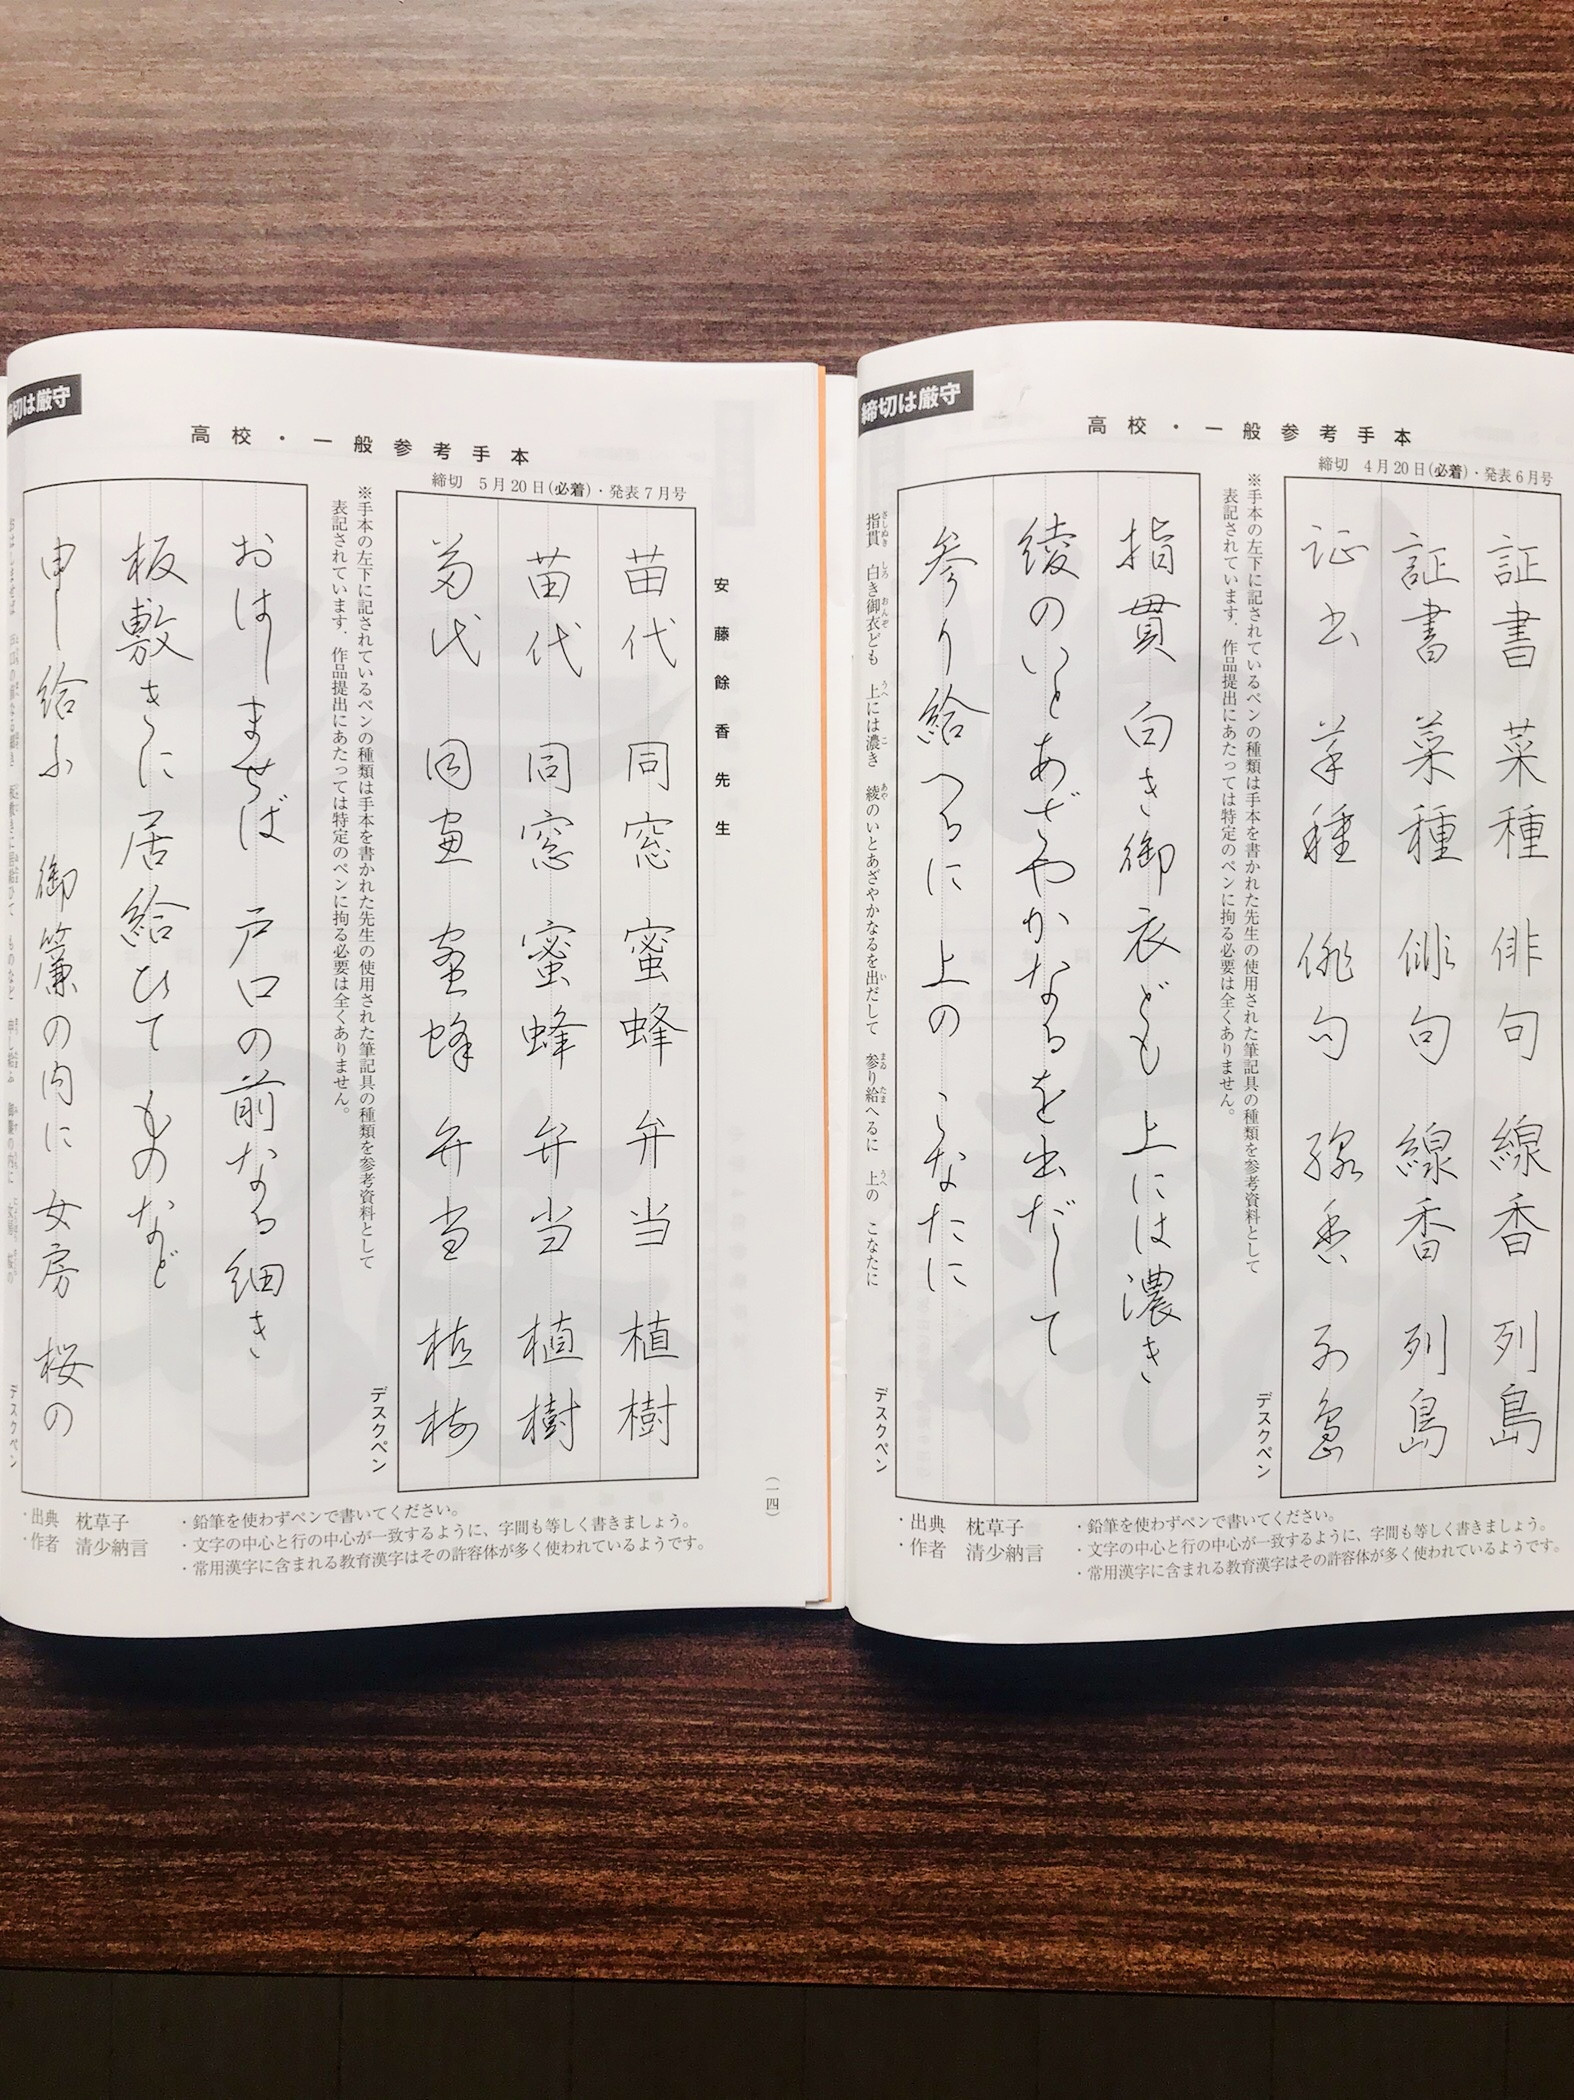 締切は厳守
高校・一般参考手本
締切 4月20日(必着)・発表6月号
証書 菜種 俳句 線香 列島
証書 菜種 俳句 線香 列島
証書 菜種 俳句 線香 列島
※手本の左下に記されているペンの種類は手本を書かれた先生の使用された筆記具の種類を参考資料として
表記されています。作品提出にあたっては特定のペンに拘る必要は全くありません。
デスクペン
指貫 白き御衣ども 上には濃き
綾のいとあざやかなるを出だして
参り給へるに 上の こなたに
指貫 白き御衣ども 上には濃き 綾のいとあざやかなるを出だして 参り給へるに 上の こなたに
さしぬき しろ おんぞ うへ こ あや い まゐ たま うへ
デスクペン
・出典 枕草子
・作者 清少納言
・鉛筆を使わずペンで書いてください。
・文字の中心と行の中心が一致するように、字間も等しく書きましょう。
・常用漢字に含まれる教育漢字はその許容体が多く使われているようです。
切は厳守
高校・一般参考手本
締切 5月20日(必着)・発表7月号
安藤餘香先生
苗代 同窓 蜜蜂 弁当 植樹
苗代 同窓 蜜蜂 弁当 植樹
苗代 同窓 蜜蜂 弁当 植樹
※手本の左下に記されているペンの種類は手本を書かれた先生の使用された筆記具の種類を参考資料として
表記されています。作品提出にあたっては特定のペンに拘る必要は全くありません。
デスクペン
おはしませば 戸口の前なる細き
板敷きに居給ひて ものなど
申し給ふ 御簾の内に 女房 桜の
デスクペン
(一四)
・出典 枕草子
・作者 清少納言
・鉛筆を使わずペンで書いてください。
・文字の中心と行の中心が一致するように、字間も等しく書きましょう。
・常用漢字に含まれる教育漢字はその許容体が多く使われているようです。